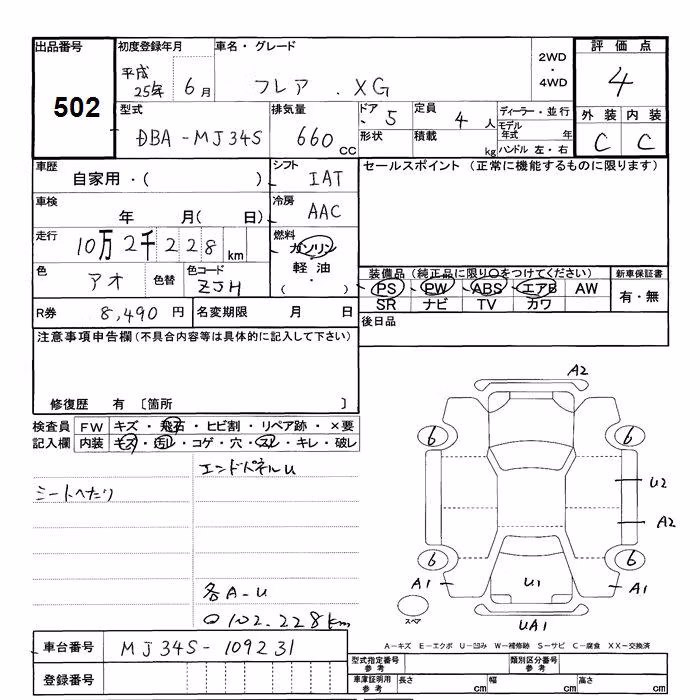 出品番号 初度登録年月 車名・グレード 評価点
502 平成25年 6月 フレア . XG 2WD・4WD 4
型式 排気量 ドア 5 定員 4人 ディーラー・並行 外装 内装
DBA-MJ34S 660cc 形状 積載 kg モデル年式 年 C C
ハンドル 左・右
車歴 シフト セールスポイント (正常に機能するものに限ります)
自家用・( ) IAT
車検 冷房
年 月( 日) AAC
走行 燃料
10万2千228km ガソリン
軽油
( ・ )
色 アオ 色替 色コード ZJH 装備品 (純正品に限り○をつけてください) 新車保証書
PS PW ABS エアB AW 有・無
SR ナビ TV カワ
R券 8,490円 名変期限 月 日 後日品
注意事項申告欄(不具合内容等は具体的に記入して下さい)
修復歴 有 〔箇所 〕
検査員 FW キズ・飛石・ヒビ割・リペア跡・×要
記入欄 内装 キズ・汚レ・コゲ・穴・スレ・キレ・破レ
エンドパネルU
シートへたり
各A-U
102.228km
A2
6 6
U2
A2
6 6
A1 U1 A1
スペア
UA1
A-キズ E-エクボ U-凹み W-補修跡 S-サビ C-腐食 XX-交換済
車台番号 MJ34S-109231 型式指定番号 参考 類別区分番号 参考
登録番号 車庫証明用 参考 長さ cm 幅 cm 高さ cm